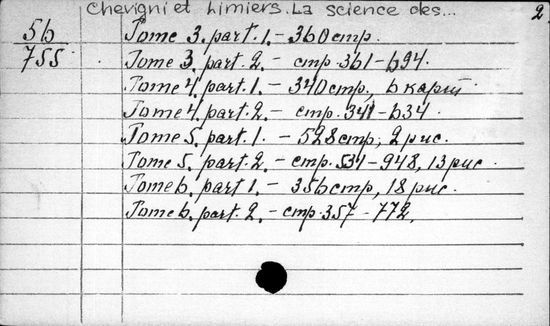 Chevigni et Limiers. La science des...
2
56
755
Tome 3. part. 1. - 360 стр.
Tome 3. part. 2. - стр. 361-694.
Tome 4. part. 1. - 340 стр., 6 карт
Tome 4. part. 2. - стр. 341-634.
Tome 5. part. 1. - 528 стр., 2 рис.
Tome 5. part. 2. - стр. 531-948, 13 рис.
Tome 6. part. 1. - 356 стр., 18 рис.
Tome 6. part. 2. - стр. 357-772.